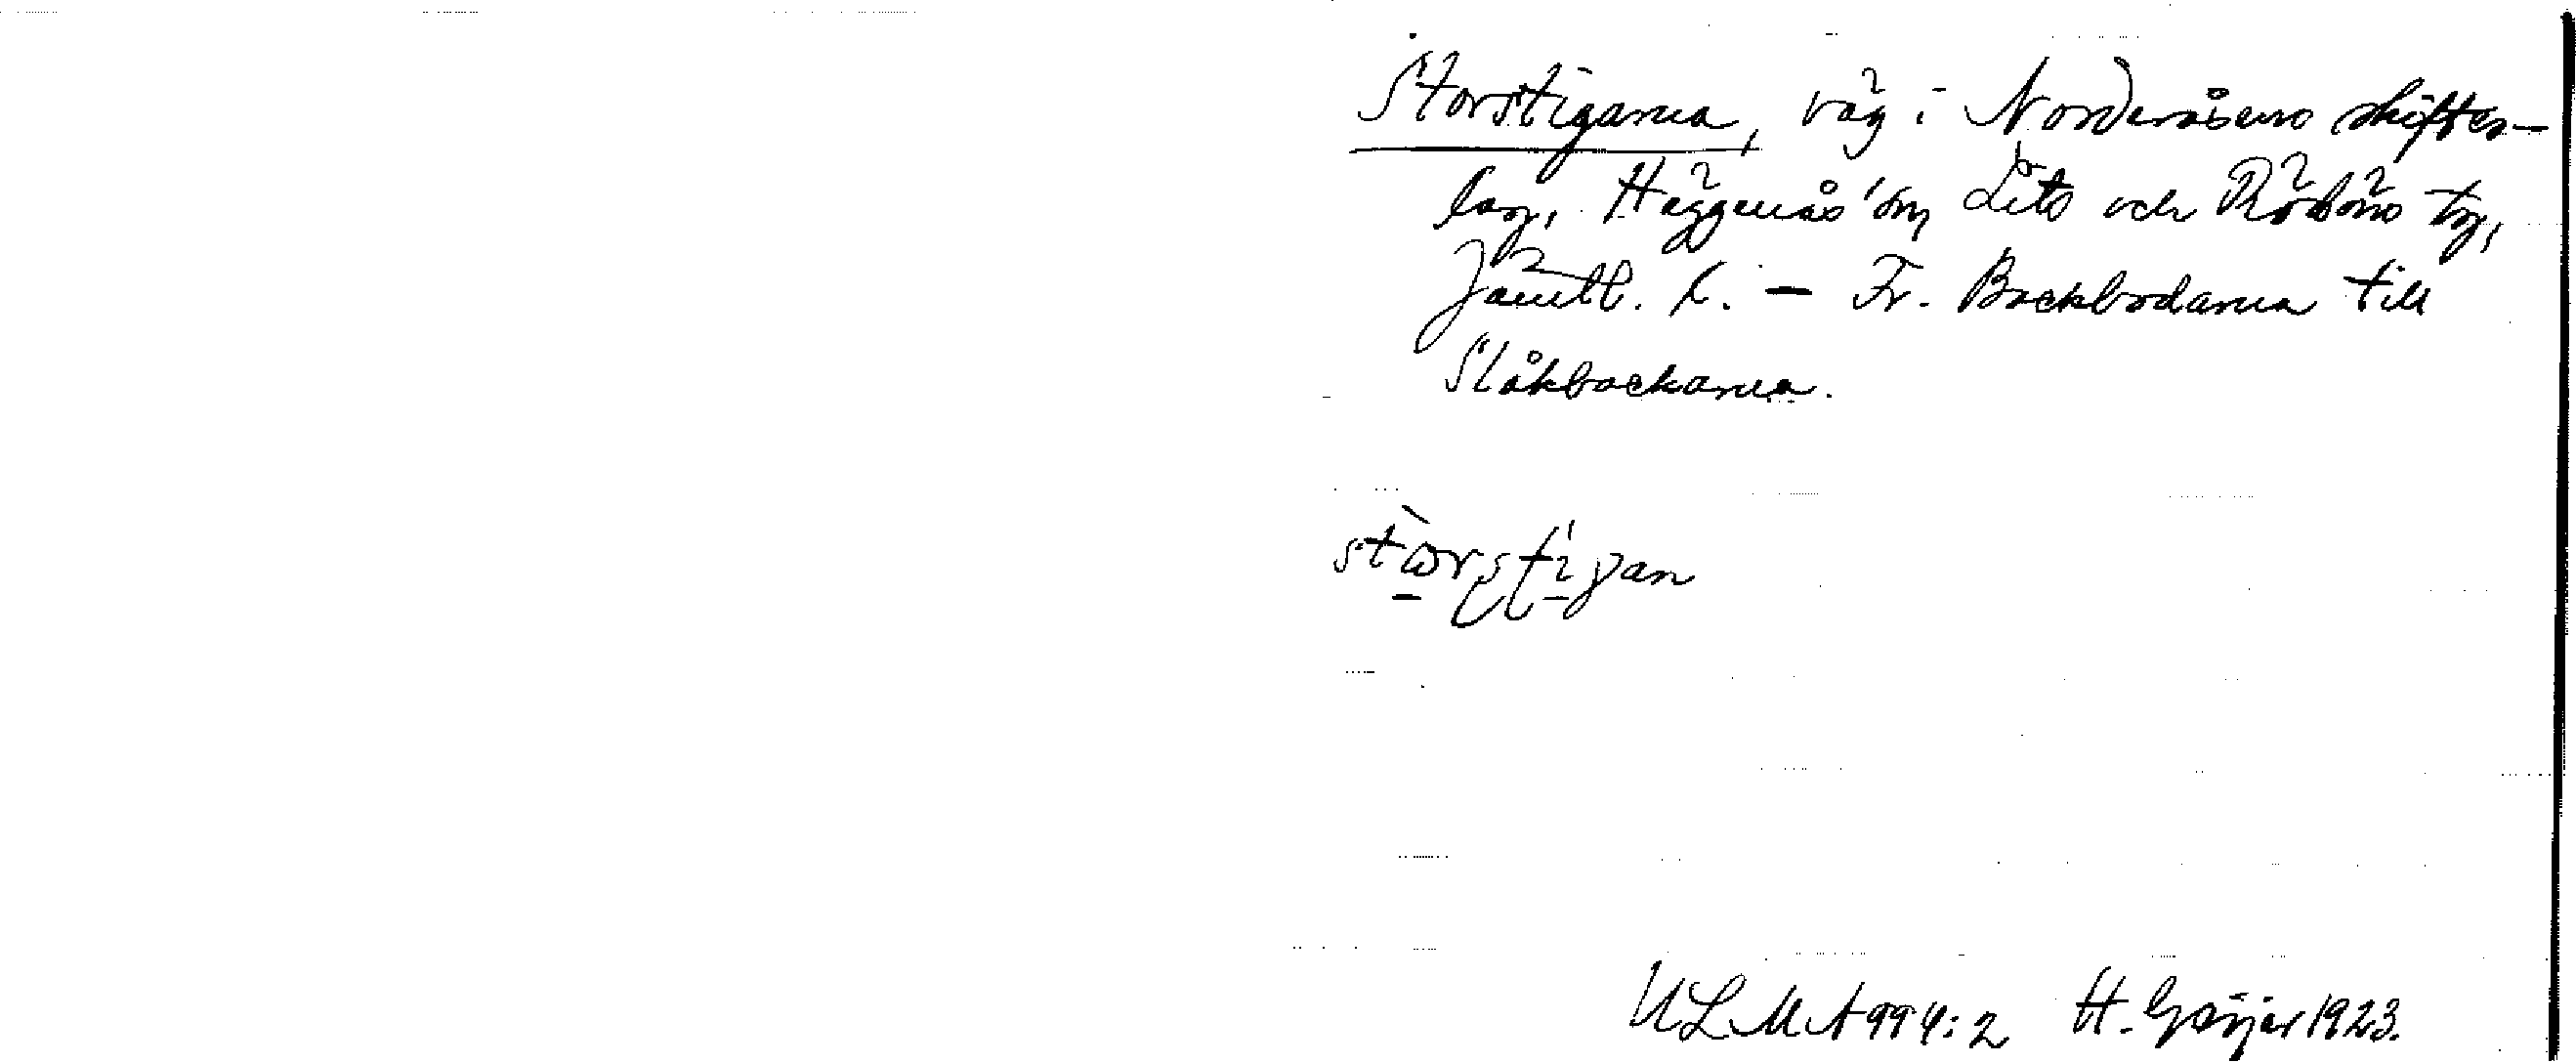 Storstigarna, väg i Norderåsens skiftes-
lag, Häggenås sn, Lits och Rödöns tg,
Jämtl. l. – Fr. Backbodarna till
Slåkbackarna.
stòrstigan
ULMA 994:2 H. Geijer 1923.